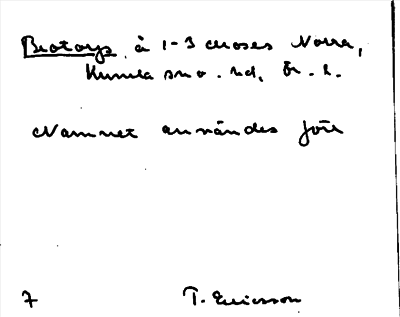 Brotorp, à 1-3 choses Norra,
Kumla sn o. hd, Ör. l.
Namnet användes förr
7 T. Ericsson